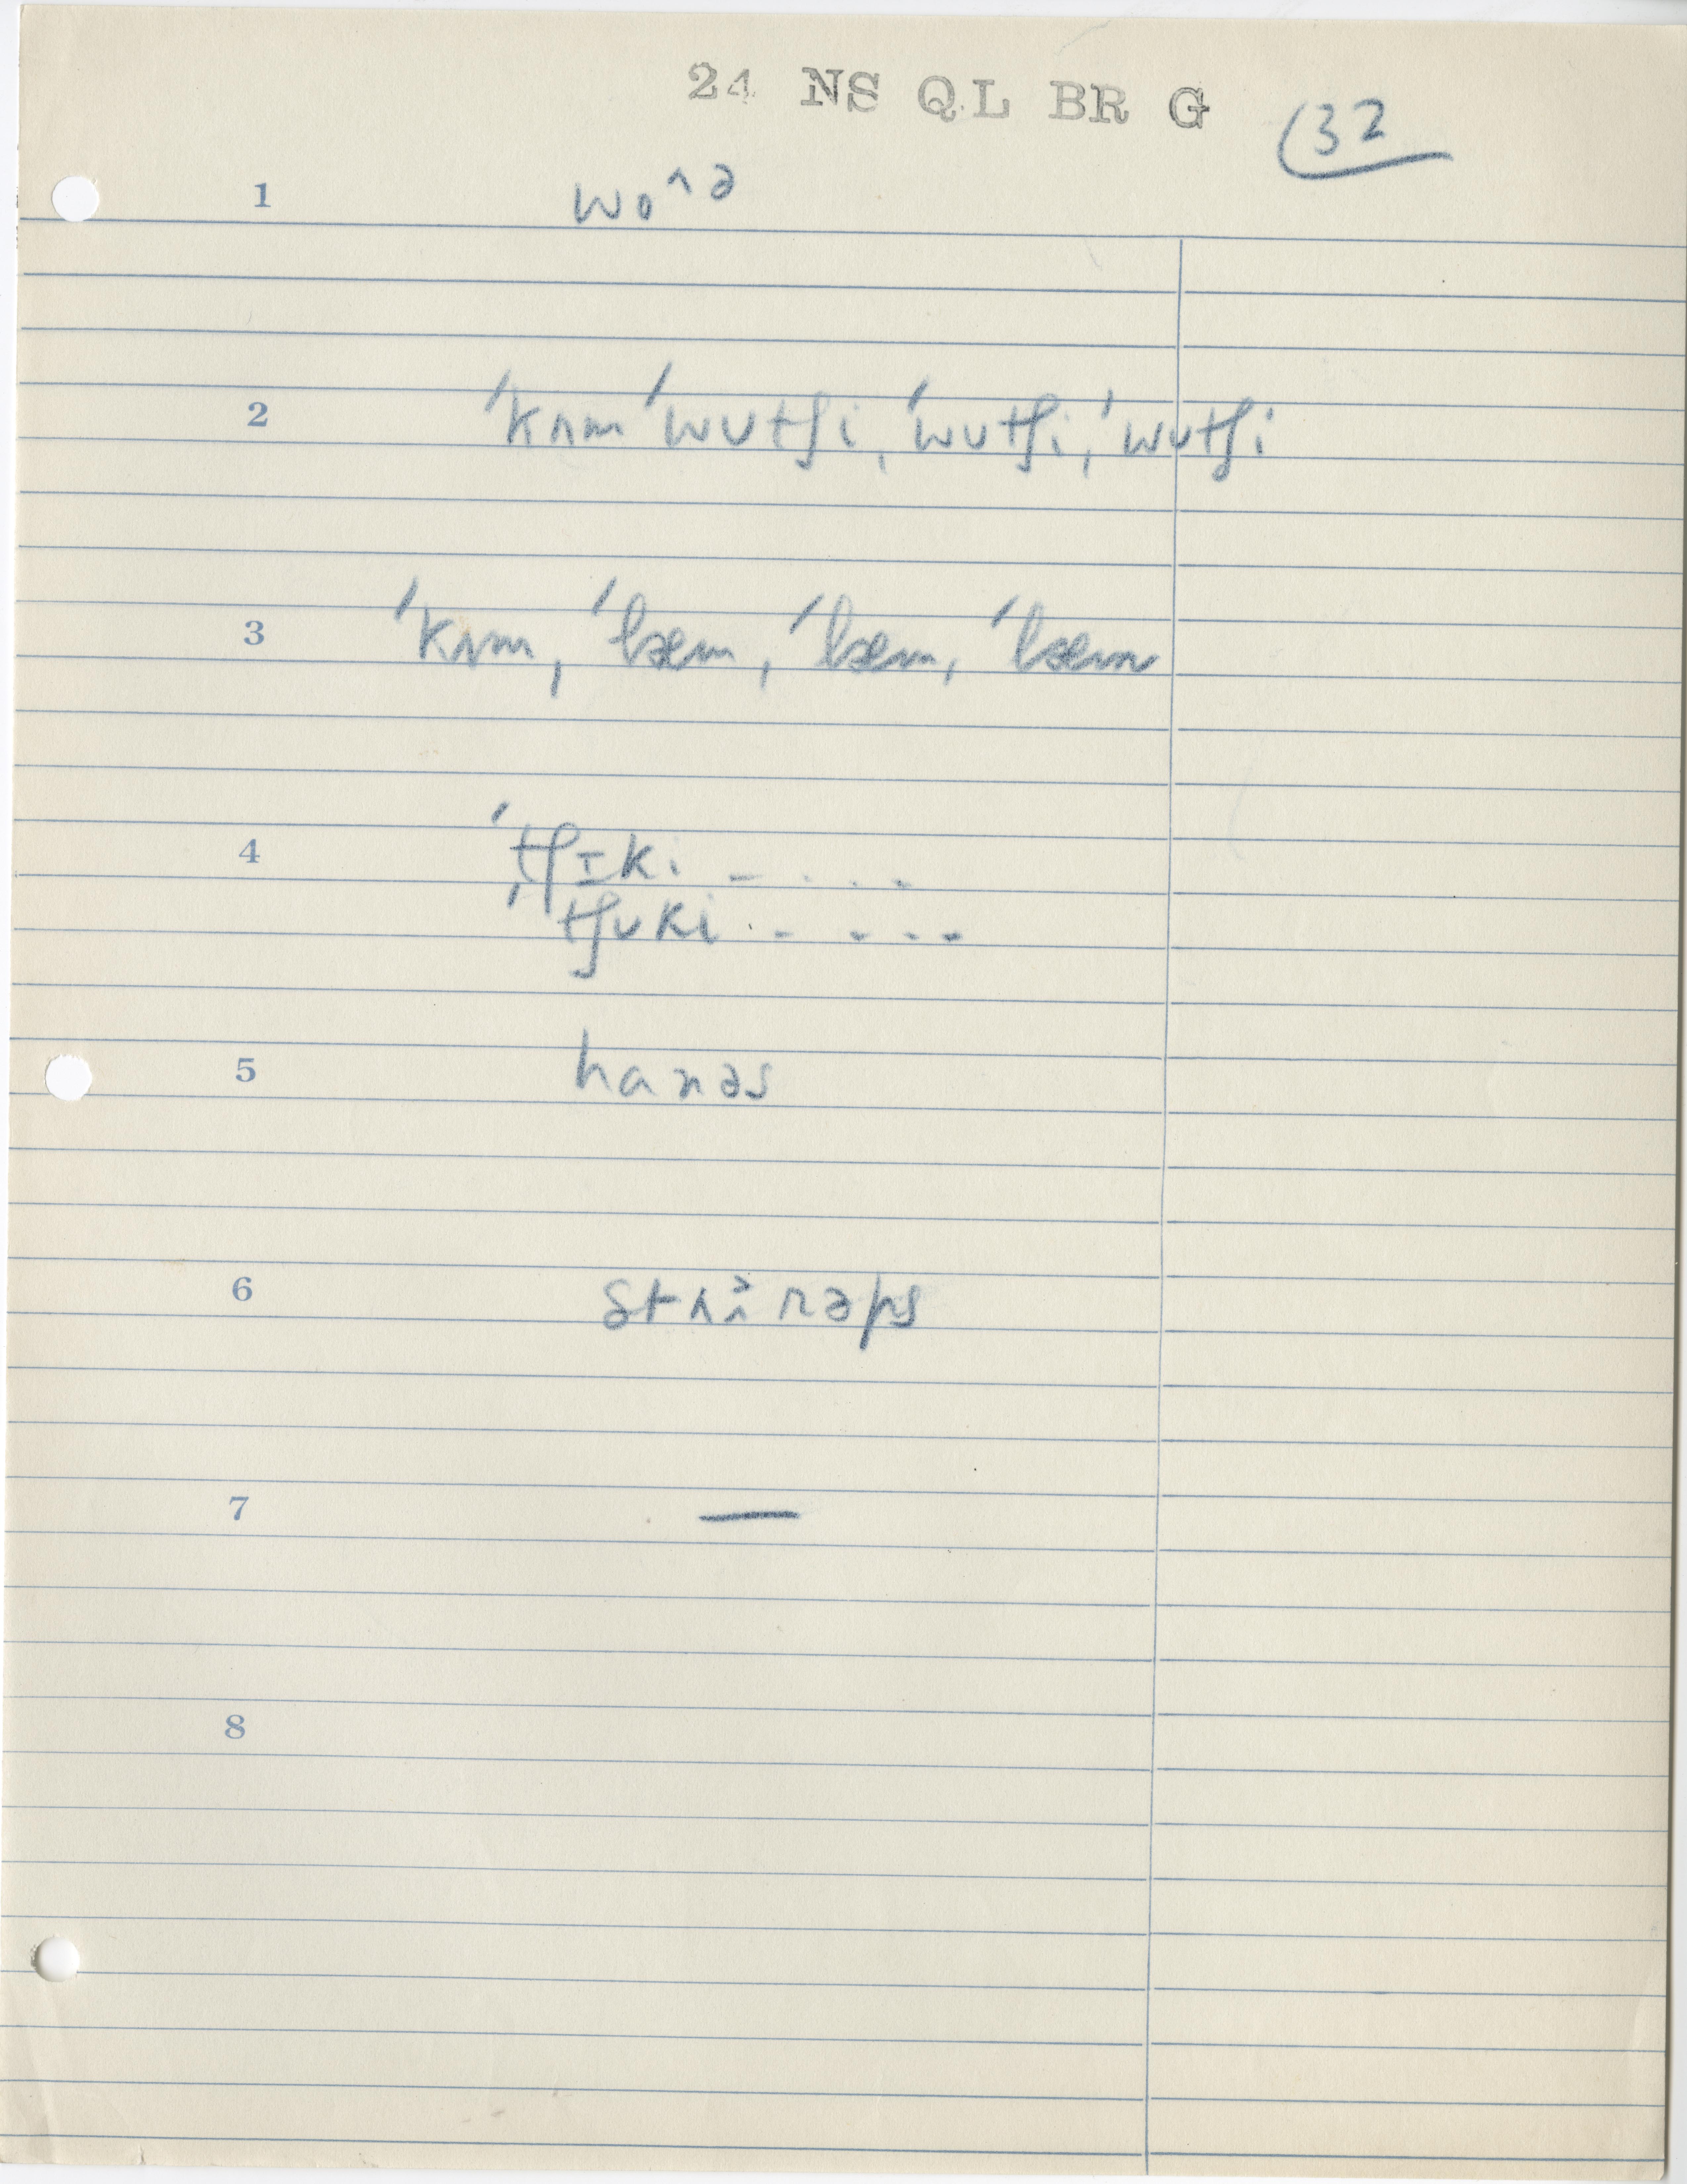 24 NS QL BR G
32
1 wo^ə
2 ˈkʌm ˈwʊtʃi, ˈwʊtʃi, ˈwʊtʃi
3 ˈkʌm, ˈlæm, ˈlæm, ˈlæm
4 ˈtʃɪki - . . - -
ˈtʃʊki - - - -
5 hanəs
6
7 —
8